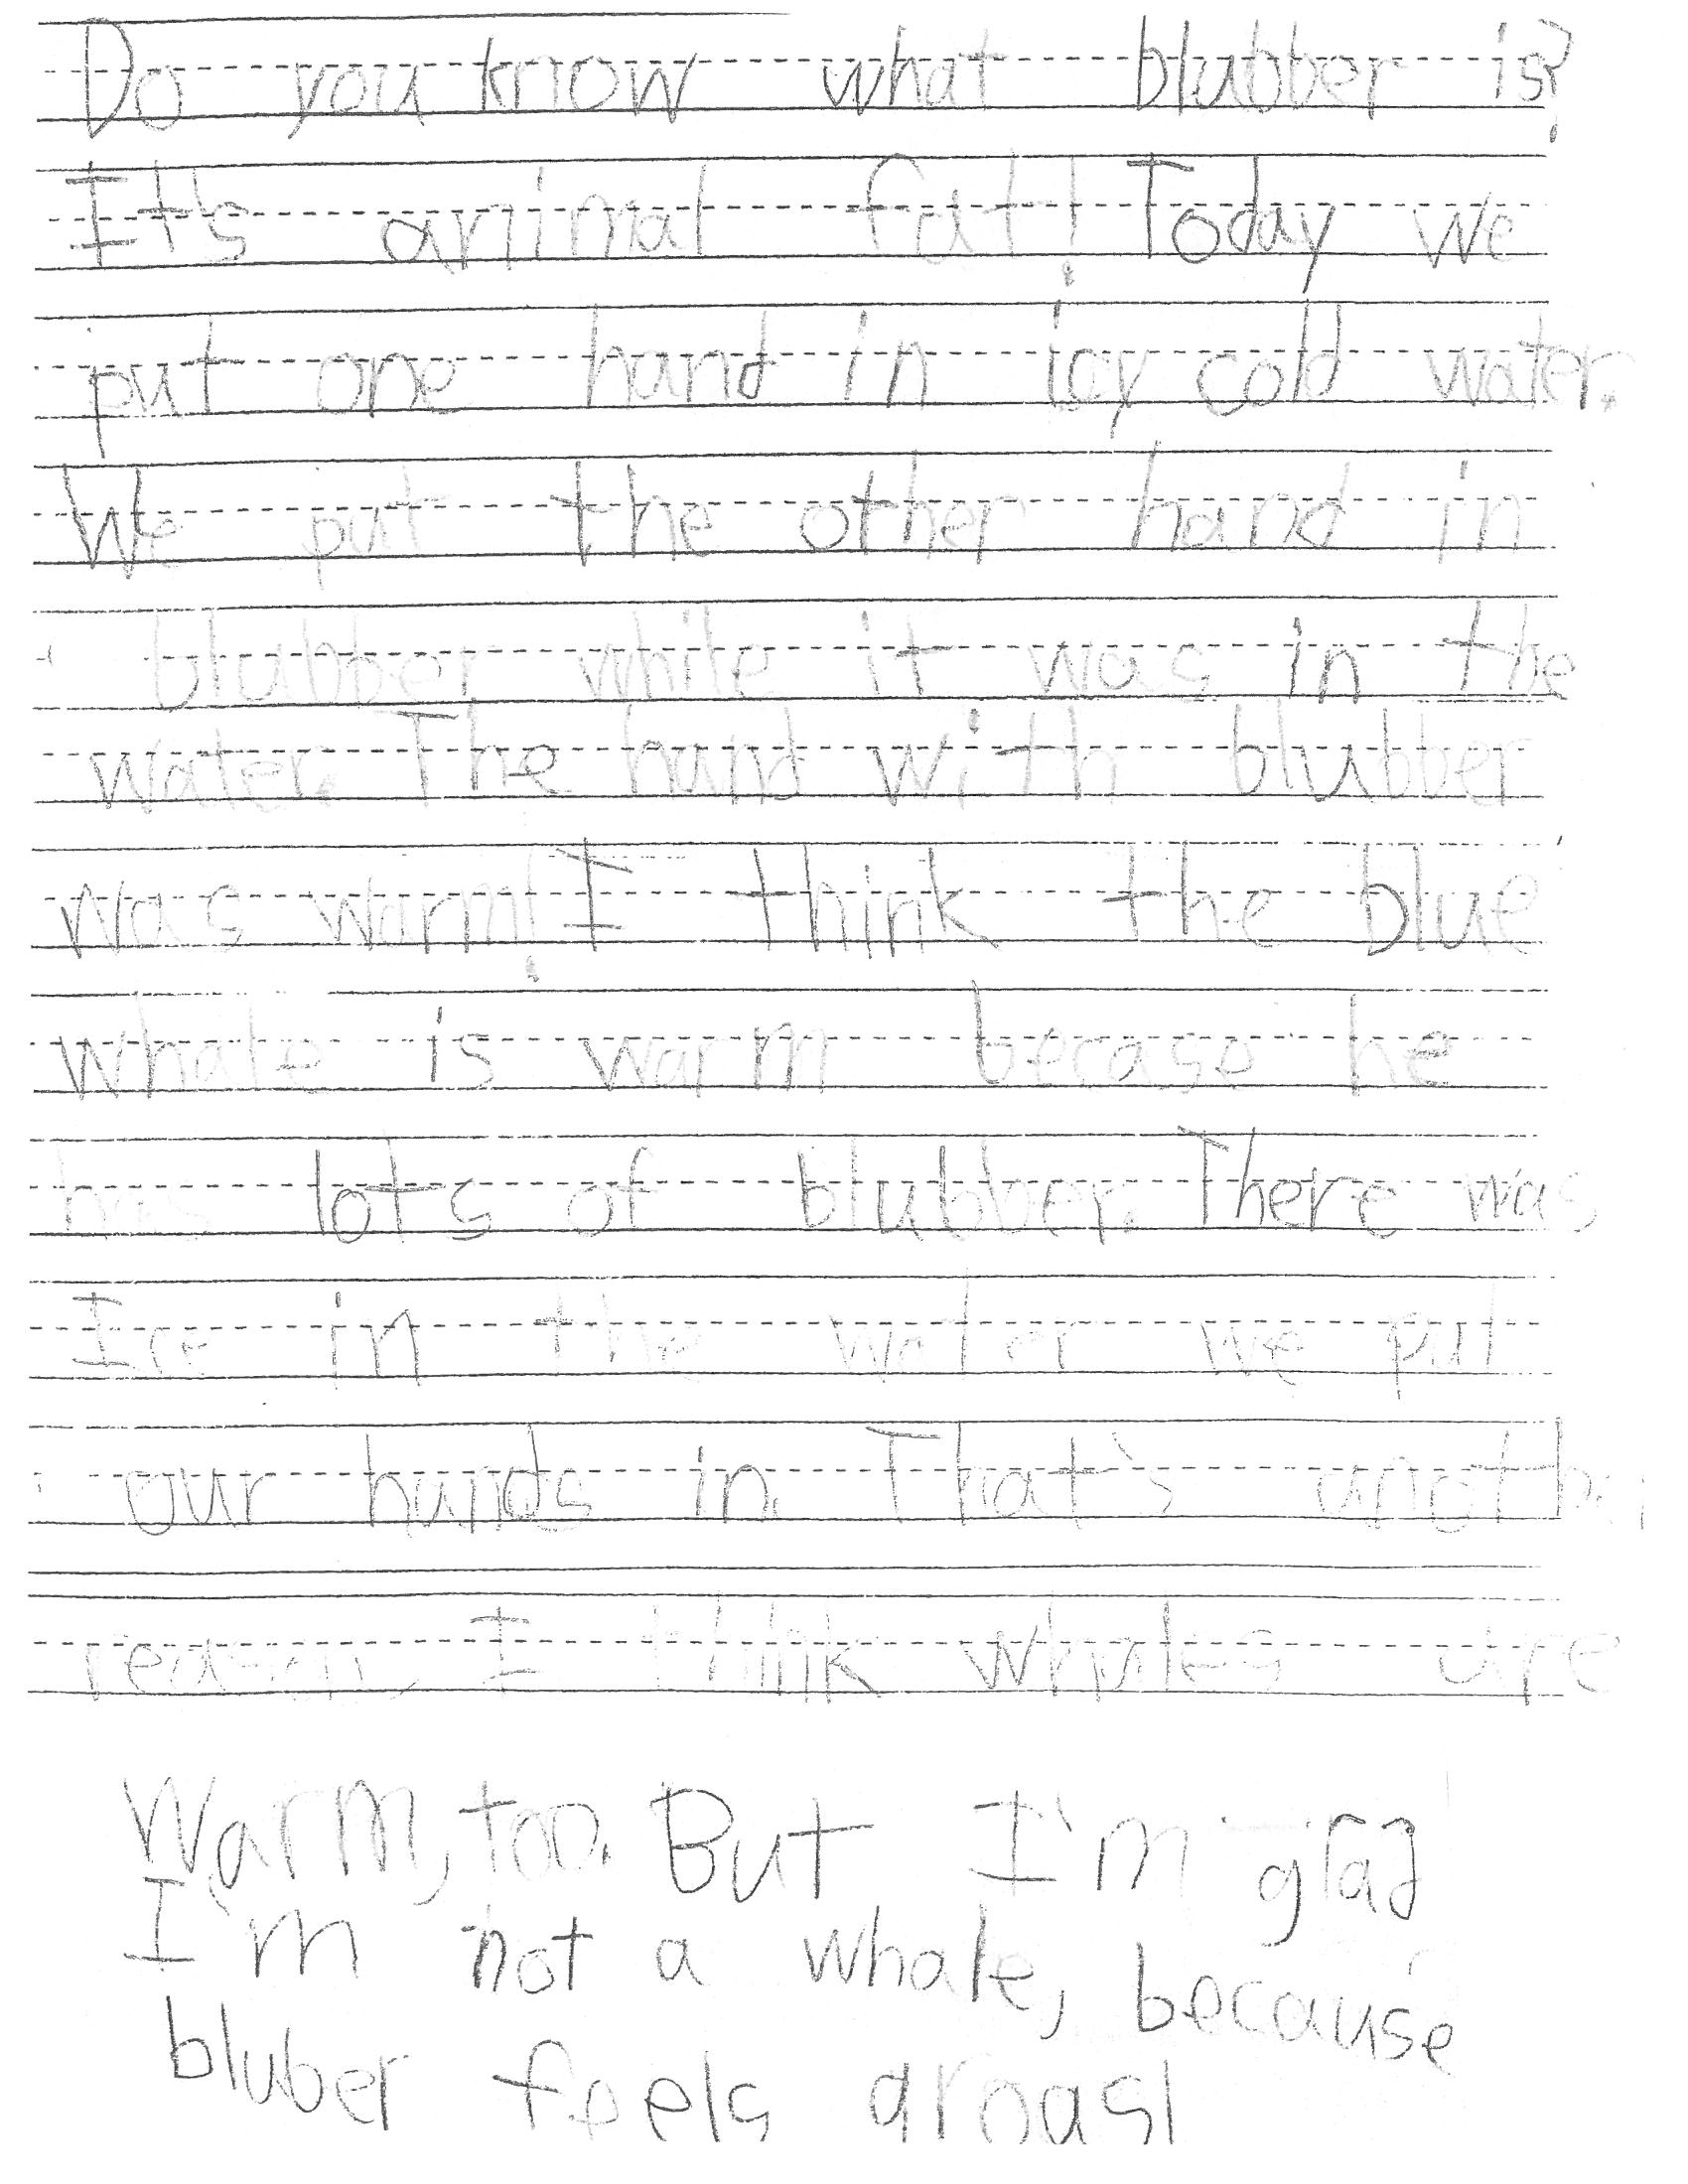 Do you know what blubber is?
It's animal fat! Today we
put one hand in icy cold water.
We put the other hand in
blubber while it was in the
water. The hand with blubber
was warm! I think the blue
whale is warm becase he
has lots of blubber. There was
Ice in the water we put
our hands in. That's another
reason I think whales are
warm, too. But I'm glad
I'm not a whale, because
bluber feels